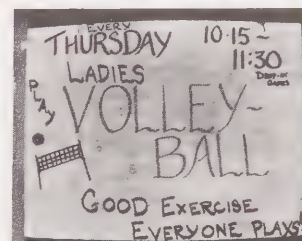 EVERY
THURSDAY 10·15~
11:30
LADIES
DROP-IN
GAMES
PLAY
VOLLEY-
BALL
GOOD EXERCISE
EVERYONE PLAYS